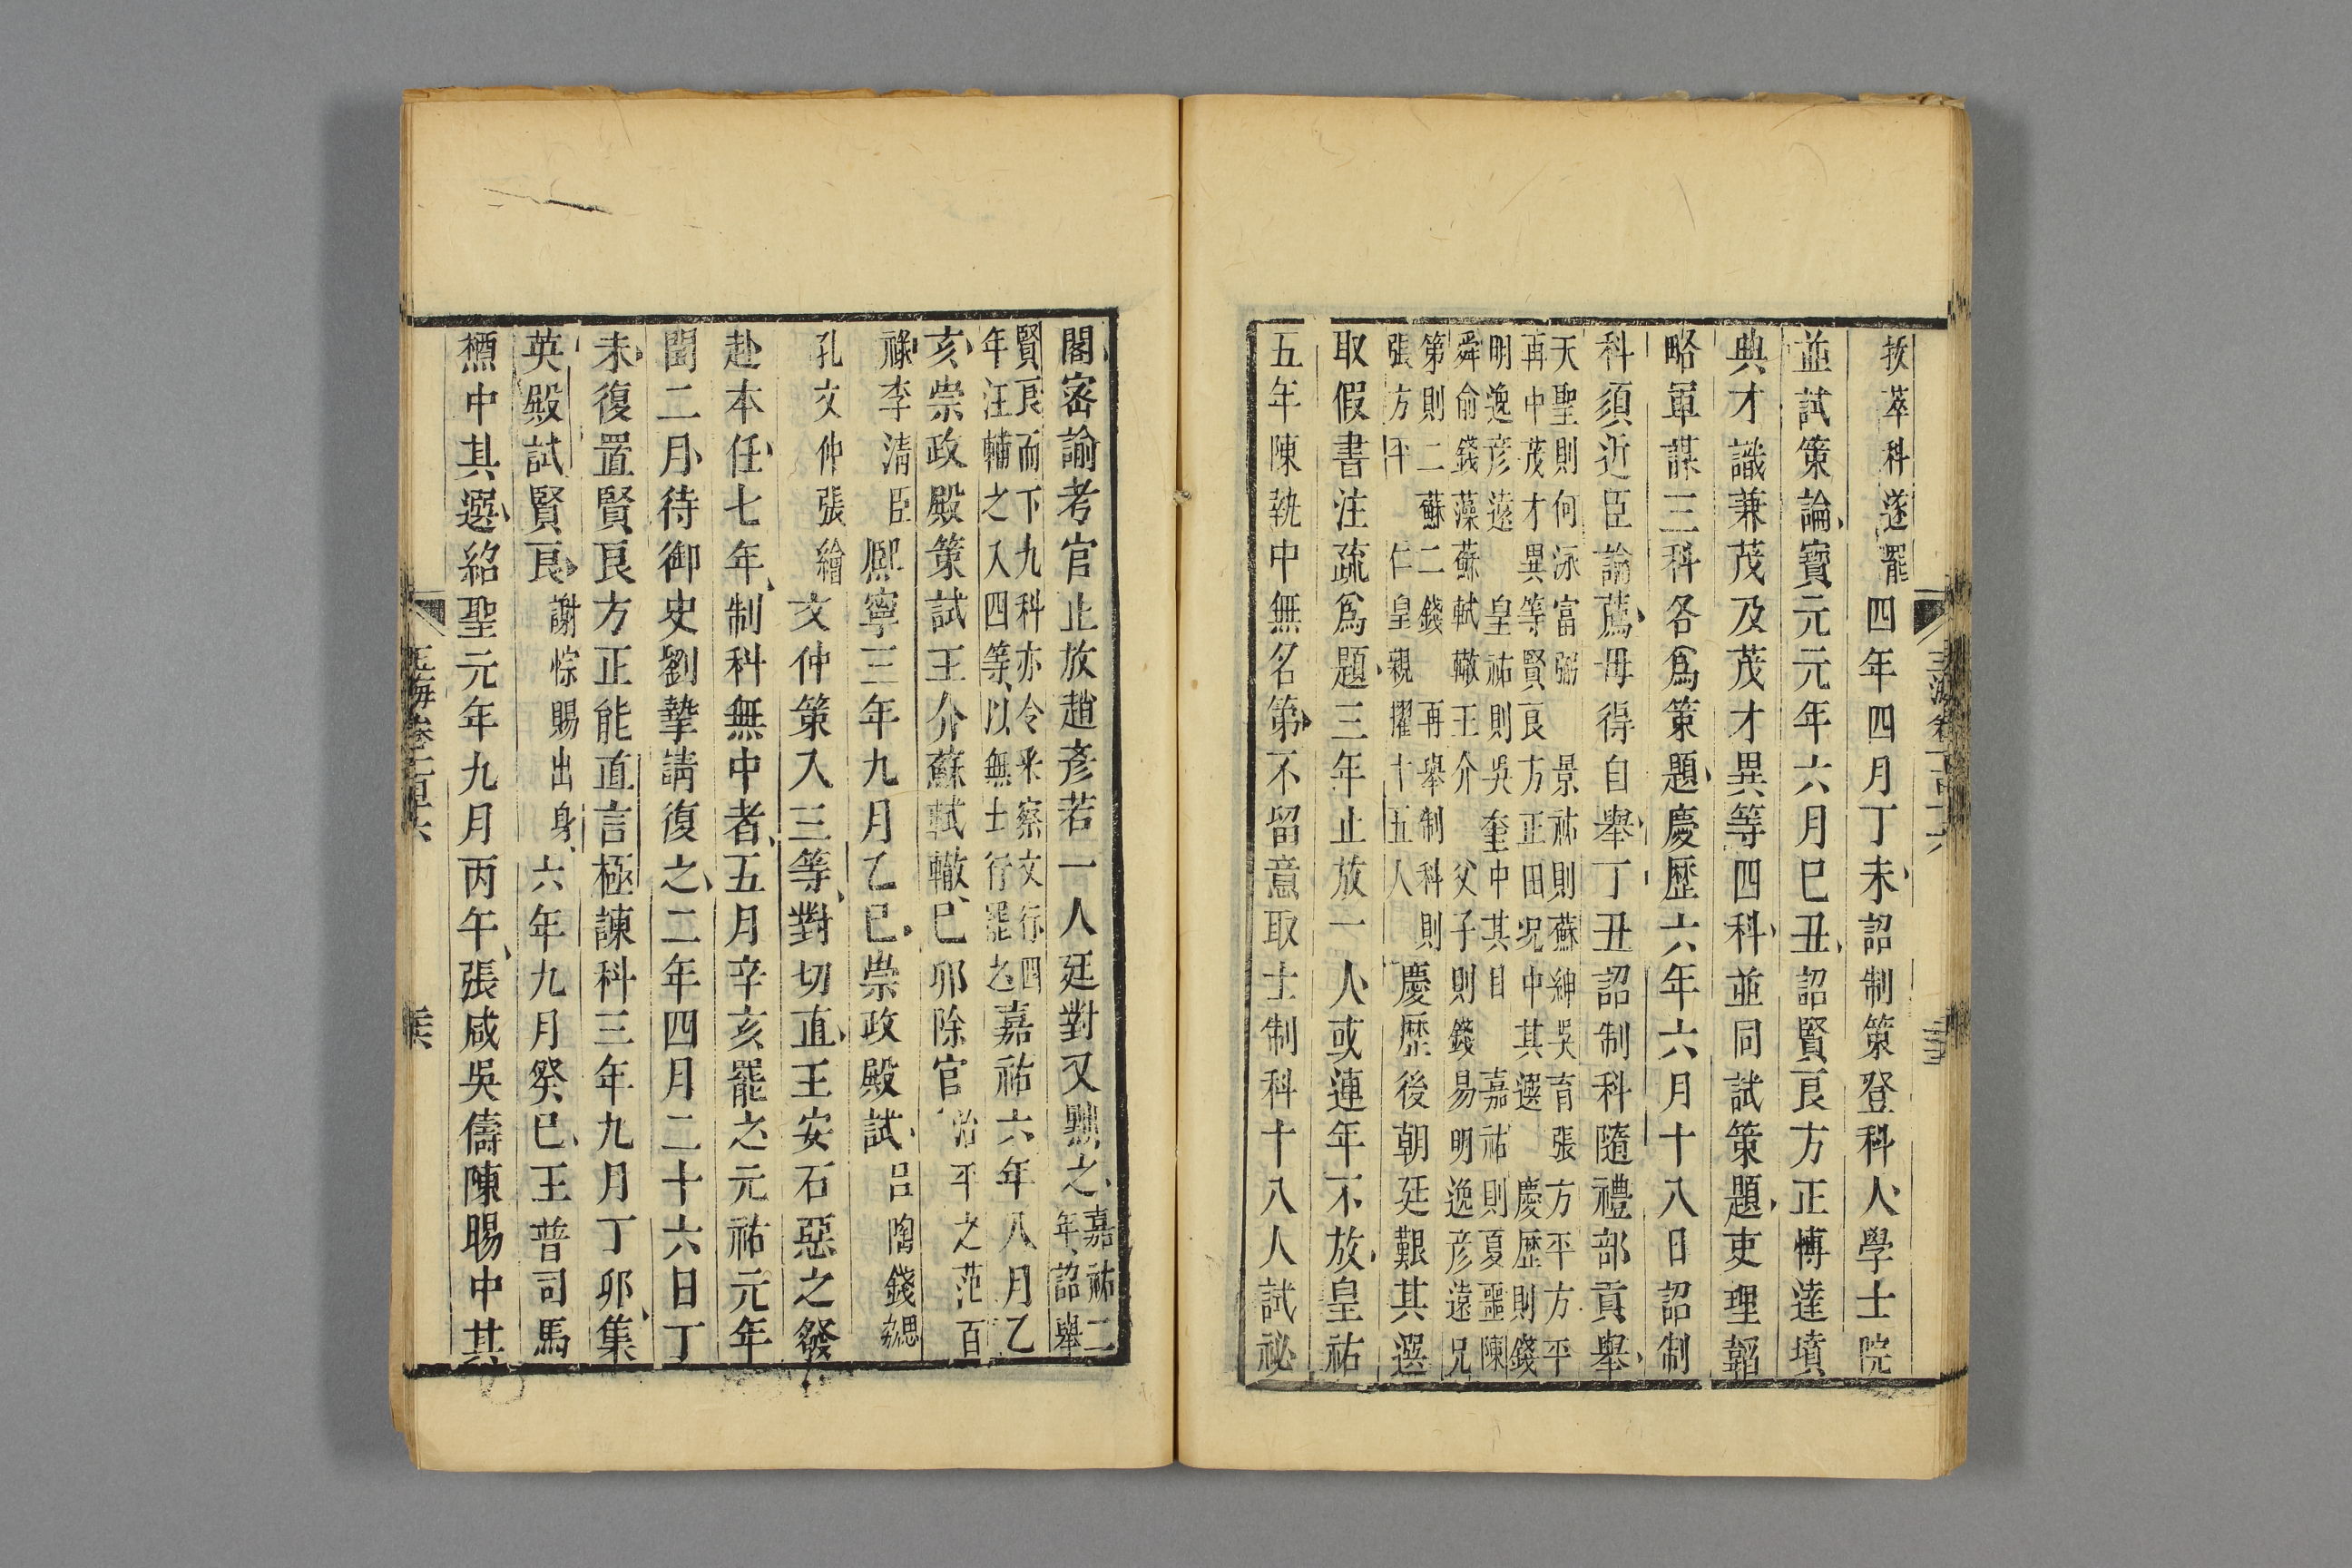 拔萃科遂罷四年四月丁未詔制策登科人學士院
並試策論寶元元年六月巳丑詔賢良方正博達墳
典才識兼茂及茂才異等四科並同試策題吏理韜
略軍謀三科各爲策題慶歷六年六月十八日詔制
科須近臣論薦毋得自舉丁丑詔制科隨禮部貢舉
天聖則何泳富弼 景祐則蘇紳吳育張方平方平
再中茂才異等賢良方正田況中其選 慶歷則錢
明逸彥遠 皇祐則吳奎中其目 嘉祐則夏噩陳
舜俞錢藻蘇軾轍王介 父子則錢易明逸彥遠兄
第則二蘇二錢 再舉制科則
張方平 仁皇親擢十五人 慶歷後朝廷艱其選
取假書注疏爲題三年止放一人或連年不放皇祐
五年陳執中無名第不留意取士制科十八人試祕
閣密諭考官止放趙彥若一人廷對又黜之嘉祐二
年詔舉
賢良而下九科亦令采察文行四
年汪輔之入四等以無士行罷之嘉祐六年八月乙
亥崇政殿策試王介蘇軾轍巳卯除官治平之范百
祿李清臣熙寧三年九月乙巳崇政殿試呂陶錢勰
孔文仲張繪文仲策入三等對切直王安石惡之發
赴本任七年制科無中者五月辛亥罷之元祐元年
閏二月待御史劉摯請復之二年四月二十六日丁
未復置賢良方正能直言極諫科三年九月丁卯集
英殿試賢良謝悰賜出身六年九月癸巳王普司馬
槱中其選紹聖元年九月丙午張咸吳儔陳暘中其